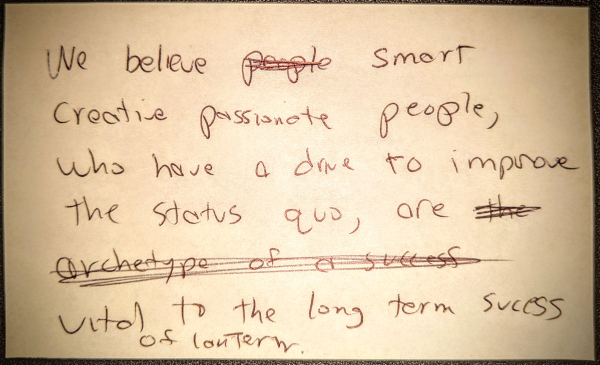 We believe people smart
Creative passionate people,
who have a drive to improve
the status quo, are the
archetype of a success
vital to the long term sucess
of lanTern.